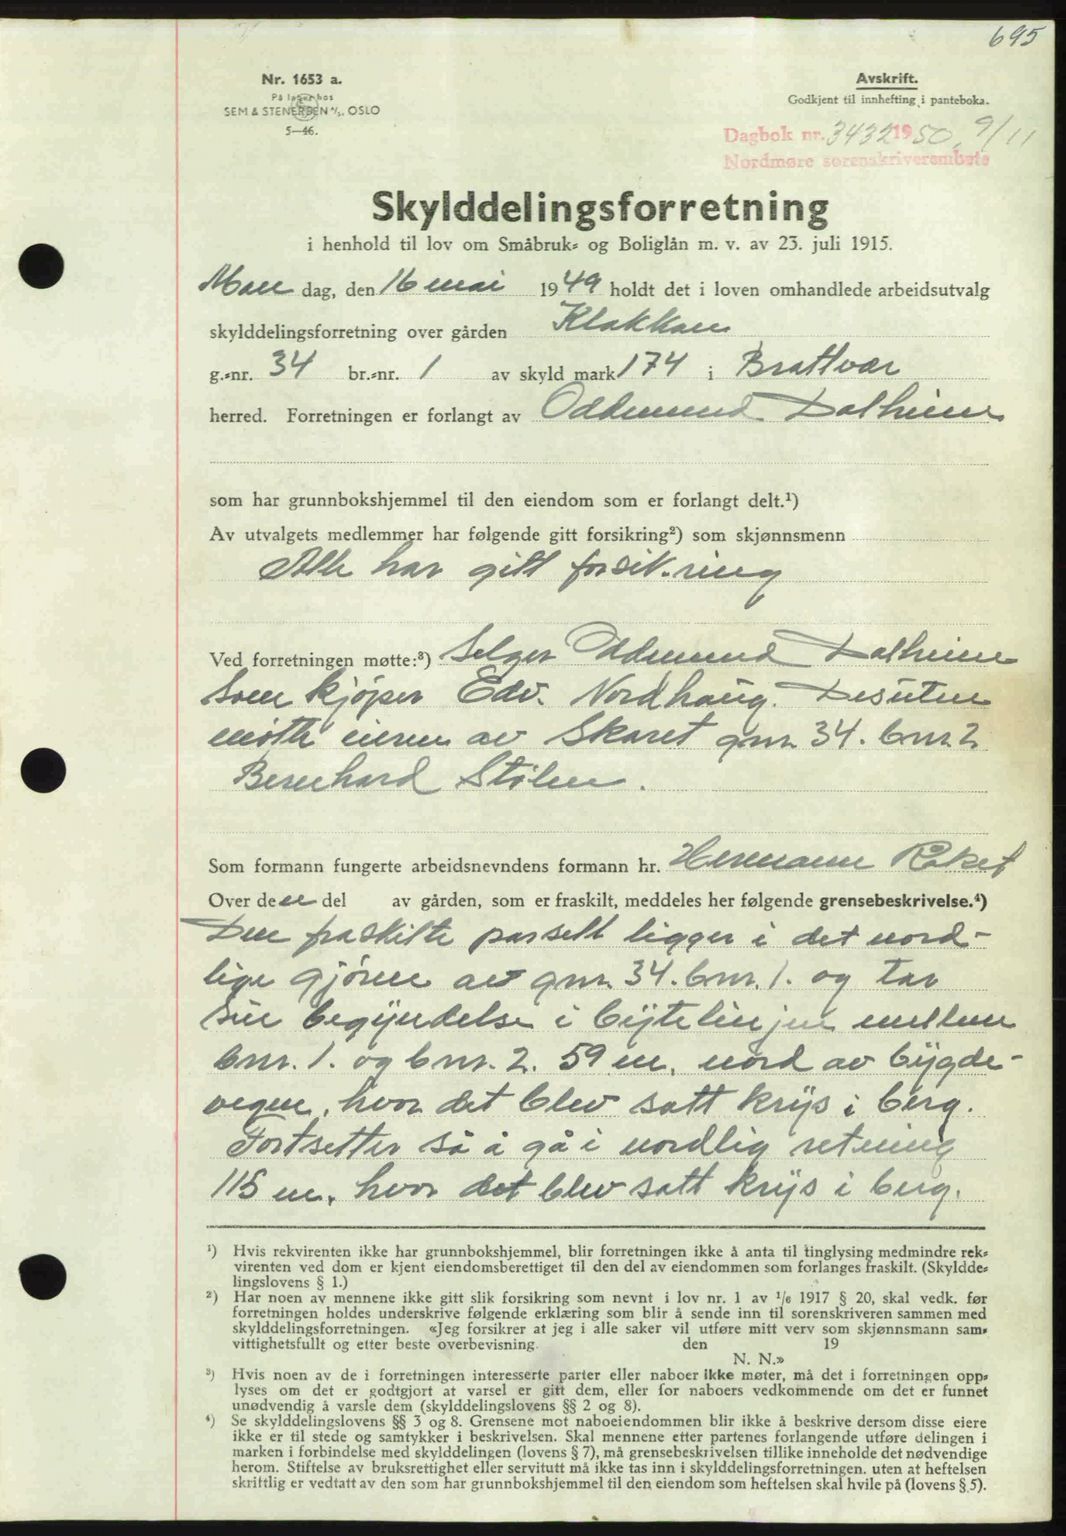 695
Nr. 1653 a.
På lager hos
SEM & STENERSEN A/S, OSLO
5—46.
Avskrift.
Godkjent til innhefting i panteboka.
Dagbok nr. 3432 1950, 9/11
Nordmøre sorenskriverembete
Skylddelingsforretning
i henhold til lov om Småbruk- og Boliglån m. v. av 23. juli 1915.
Man dag, den 16 mai 1949 holdt det i loven omhandlede arbeidsutvalg
skylddelingsforretning over gården Klakkan
g.-nr. 34 br.-nr. 1 av skyld mark 1 74 i Brattvær
herred. Forretningen er forlangt av Oddmund Dalheim
som har grunnbokshjemmel til den eiendom som er forlangt delt.¹)
Av utvalgets medlemmer har følgende gitt forsikring²) som skjønnsmenn
Alle har gitt forsikring
Ved forretningen møtte:³) Selger Oddmund Dalheim
som kjøper Edv. Nordhaug. Desuten
møtte eieren av Skaret gnr. 34. bnr. 2
Bernhard Stølen.
Som formann fungerte arbeidsnevndens formann hr. Hermann Røket
Over den del av gården, som er fraskilt, meddeles her følgende grensebeskrivelse.⁴)
Den fraskilte parsell ligger i det nord-
lige gjøren av gnr. 34. bnr. 1. og tar
sin begyndelse i bytelinjen mellem
bnr. 1. og bnr. 2. 59 m. nord av bygde-
vegen, hvor det blev satt krys i berg.
Fortsetter så å gå i nordlig retning
115 m. hvor det blev satt krys i berg.
¹) Hvis rekvirenten ikke har grunnbokshjemmel, blir forretningen ikke å anta til tinglysing medmindre rek-
virenten ved dom er kjent eiendomsberettiget til den del av eiendommen som forlanges fraskilt. (Skyldde-
lingslovens § 1.)
²) Har noen av mennene ikke gitt slik forsikring som nevnt i lov nr. 1 av 1/6 1917 § 20, skal vedk. før
forretningen holdes underskrive følgende erklæring som blir å sende inn til sorenskriveren sammen med
skylddelingsforretningen. «Jeg forsikrer at jeg i alle saker vil utføre mitt verv som skjønnsmann sam-
vittighetsfullt og etter beste overbevisning. den 19
N. N.»
³) Hvis noen av de i forretningen interesserte parter eller naboer ikke møter, må det i forretningen opp-
lyses om det er godtgjort at varsel er gitt dem, eller for naboers vedkommende om det er funnet
unødvendig å varsle dem (skylddelingslovens §§ 2 og 8).
⁴) Se skylddelingslovens §§ 3 og 8. Grensene mot naboeiendommen blir ikke å beskrive dersom disse eiere
ikke er til stede og samtykker i beskrivelsen. Skal mennene etter partenes forlangende utføre delingen i
marken i forbindelse med skylddelingen (lovens § 7), må grensebeskrivelsen tillike inneholde det nødvendige
herom. Stiftelse av bruksrettighet eller servitutt må ikke tas inn i skylddelingsforretningen. uten at heftelsen
skriftlig er vedtatt av den som har grunnbokshjemmel til den eiendom som heftelsen skal hvile på (lovens § 5).